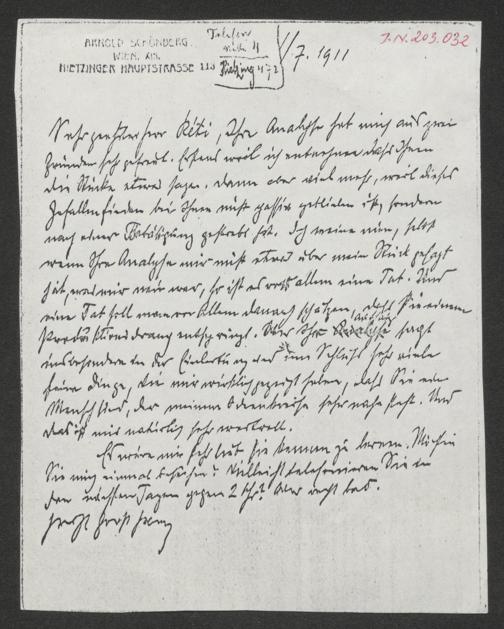 ARNOLD SCHÖNBERG
WIEN, XIII.
HIETZINGER HAUPTSTRASSE 113
Telefon
Hietzing 472
/7. 1911
I.N. 203.032
Sehr geehrter Herr Réti, Ihre Analyse hat mich aus zwei
Gründen sehr gefreut. Erstens weil ich entnehme, dass Ihnen
die Stücke etwas sagen. Dann aber viel mehr, weil dieses
Gefallenfinden bei Ihnen nicht passiv geblieben ist, sondern
nach einer Betätigung gestrebt hat. Ich meine nun, selbst
wenn Ihre Analyse mir nicht etwas über mein Stück gesagt
hat, was mir neu war, so ist es vor allem eine Tat. Und
eine Tat soll man vor allem danach schätzen, dass Sie einem
Produktionsdrang entspringt. Aber Ihr Aufsatz sagt
insbesondere in der Einleitung und im Schluss sehr viele
feine Dinge, die mir wirklich gezeigt haben, dass Sie ein
Mensch sind, der meinem Ideenkreise sehr nahe steht. Und
das ist mir natürlich sehr wertvoll.
Es wäre mir sehr lieb Sie kennen zu lernen. Wollen
Sie mich einmal besuchen? Vielleicht telephonieren Sie in
den nächsten Tagen gegen 2 Uhr? Aber recht bald.